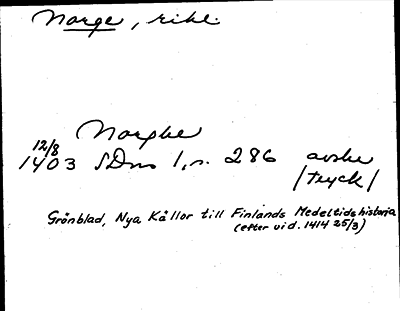 Norge, rike.
Norghe
12/8
1403 SDns 1, n. 286 avskr
/tryck/
Grönblad, Nya Källor till Finlands Medeltidshistoria
(efter vid. 1414 25/3)